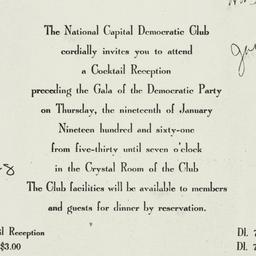 The National Capital Democratic Club
cordially invites you to attend
a Cocktail Reception
preceding the Gala of the Democratic Party
on Thursday, the nineteenth of January
Nineteen hundred and sixty-one
from five-thirty until seven o'clock
in the Crystal Room of the Club
The Club facilities will be available to members
and guests for dinner by reservation.
Reception
$3.00
DI. 7
DI. 7